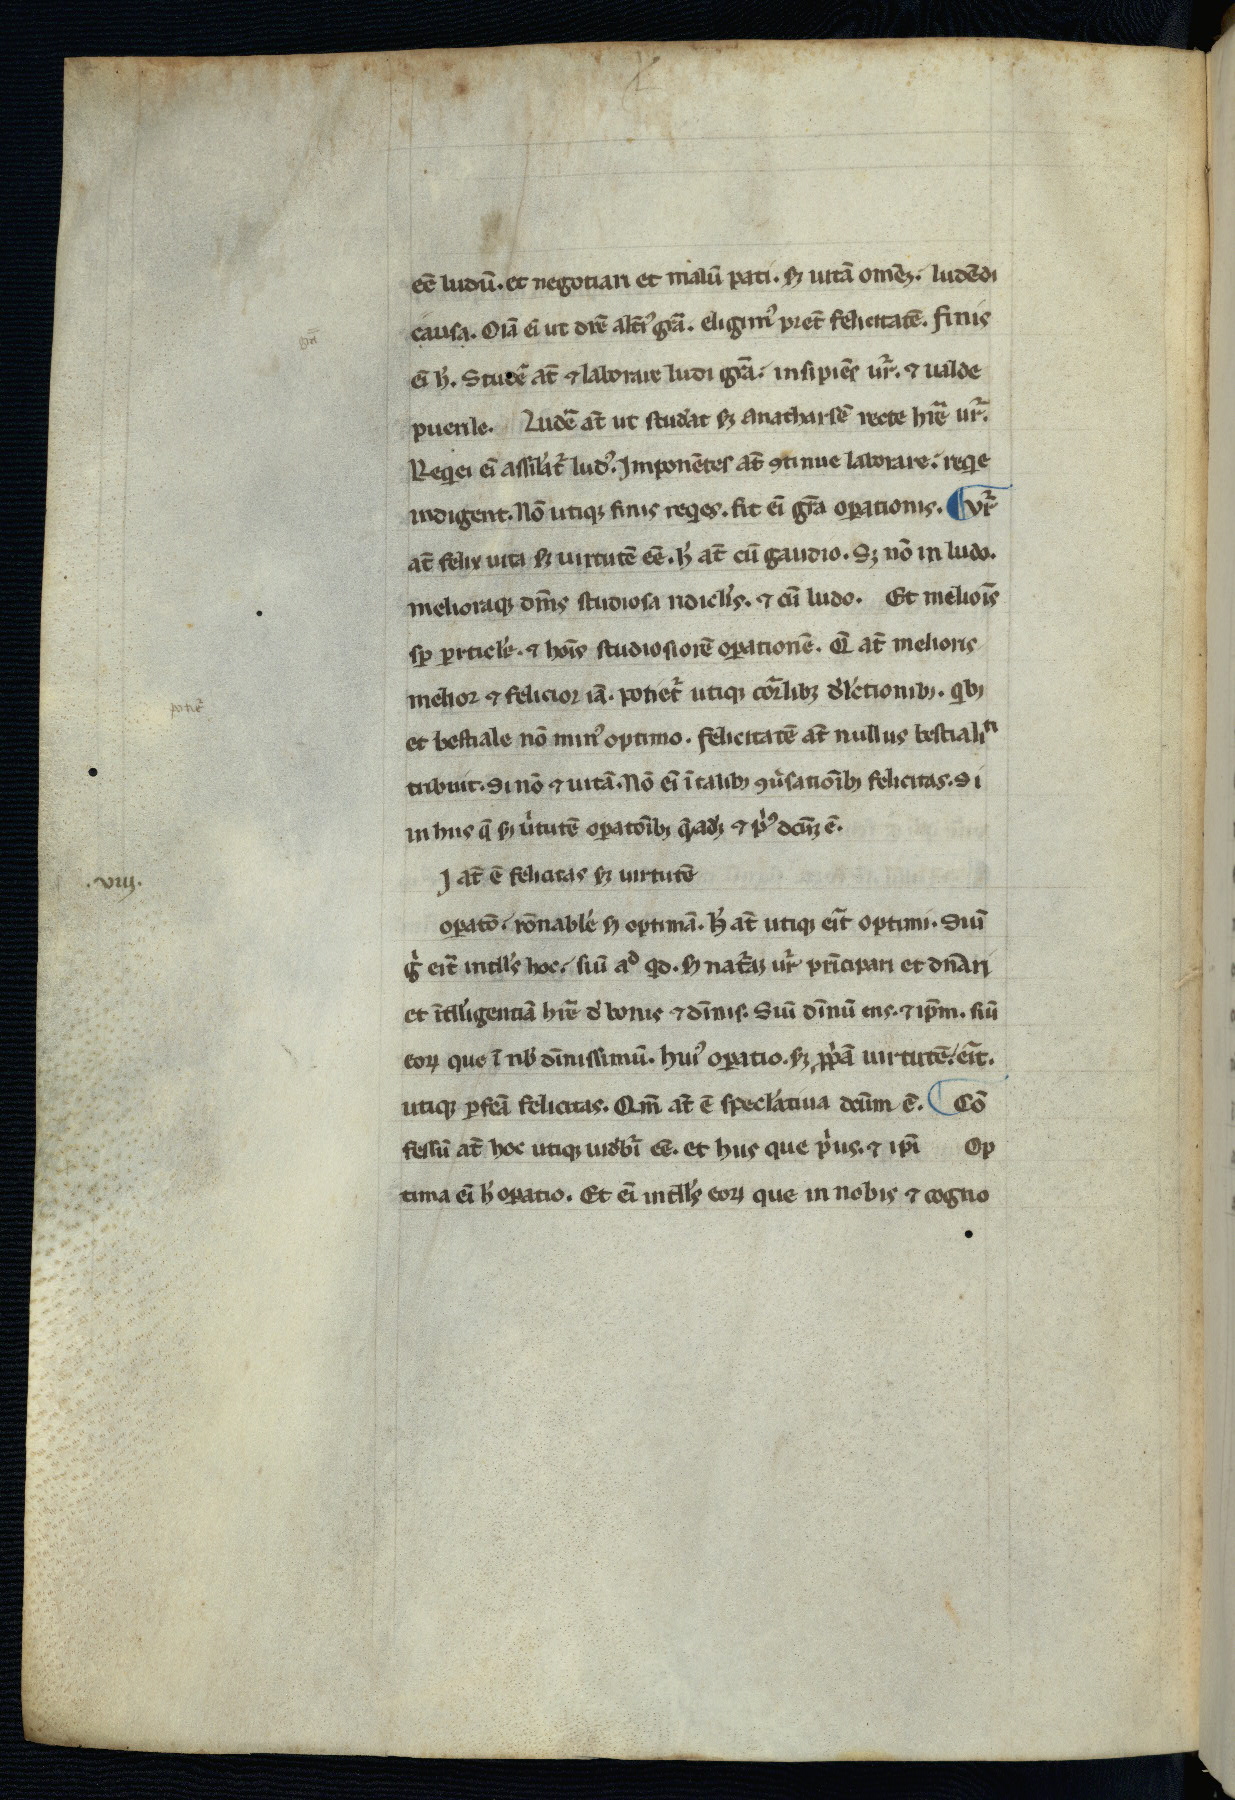 eē ludū. et negotiari et malū pati. ſꝫ uitā omēꝫ. ludēdi
causa. Oīa eī ut dr̄e alt̄iꝰ gr̄a. eligimꝰ p̄ret felicitatē. finis
eī h̾. Studē̄ at̄ ⁊ laborare ludi gr̄a. insipiēs ur̄. ⁊ ualde
puerile. Ludē̄ at̄ ut studeat ſꝫ anatharsē recte hr̄e ur̄.
Reqiei eī assilat̄ ludꝰ. Impotētes at̄ ꝯtinue laborare. reqie
indigent. Nō utiqꝫ finis reqies. fit eī gr̄a oꝑationis. ¶ Ur̄
at̄ felix uita ſꝫ uirtutē eē. h̾ at̄ cū gaudio. Sꝫ nō in ludo.
melioraqꝫ dm̄s studiosa ridicl̾is. ⁊ cū ludo. Et meliorīs
ſꝑ ꝑticl̾e. ⁊ hoīs studiosiorē oꝑationē. Q̄ at̄ melioris
melior ⁊ felicior iā. potiet̄ utiqꝫ cor̄libꝫ dl̾ectionibꝫ. qibꝫ
et bestiale nō minꝰ optimo. felicitatē at̄ nullus bestiali
tribuit. Si nō ⁊ uitā. Nō eī ī talibꝫ ꝯuersatioībꝫ felicitas. Si
in hiis q̄ ſꝫ uirtutē oꝑatoībꝫ q̄adꝫ ⁊ priꝰ dcm̄ ē.
.viii.
I at̄ ē felicitas ſꝫ uirtutē
oꝑatō. rōnabl̾e ſꝫ optimā. h̾ at̄ utiqꝫ eīt optimi. Siuī
gͥ eīt intll̾s hoc. siuī ad qd. ſꝫ nat̄aꝫ ur̄ prīcipari et dn̄ari
et ītll̾igentiā hr̄e de bonis ⁊ dīnis. Siuī dīnū ens. ⁊ ip̄m. siuī
eoꝝ que ī nb̾ dīnissimū. huiꝰ oꝑatio. ſꝫ ꝓpͥā uirtutē. eīt.
utiqꝫ ꝑfc̄a felicitas. Qm̄ at̄ ē specl̾atiua dcūm ē. ¶ Cō
fessū at̄ hoc utiqꝫ uidebr̄ eē. et hiis que prius. ⁊ ip̄i Op
tima eī h̾ oꝑatio. Et eī intll̾s eoꝝ que in nobis ⁊ cogno
potiet̄